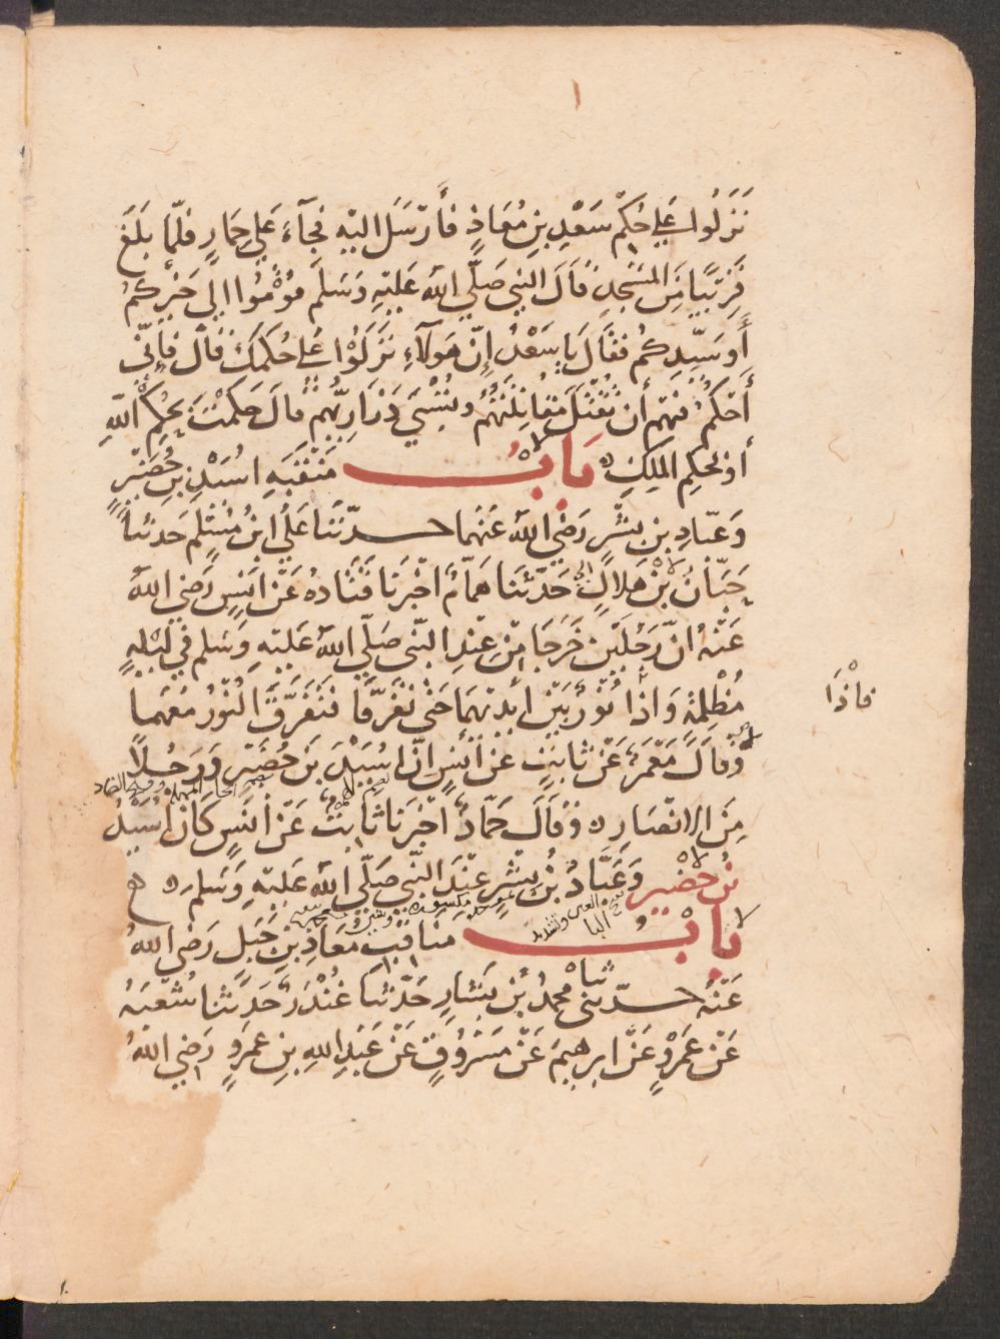 ١
نَزَلُوا عَلَى حُكْمِ سَعْدِ بْنِ مُعَاذٍ فَأَرْسَلَ اِلَيْهِ فَجَآءَ عَلَى حِمَارٍ فَلَمَّا بَلَغَ
قَرِيْبًا مِنَ المَسْجِدِ قَالَ النبي صَلَّى اللهُ عَلَيْهِ وَسَلَّمَ قُوْمُوا اِلَى خَيْرِكُمْ
أَوسَيِّدِكُم فَقَالَ يَا سَعْدُ إِنَّ هَولَآءِ نَزَلُوْا عَلَى حُكمِكَ قَالَ فَاِنِّي
أَحْكُمُ فِيْهِمْ أَنْ تُقْتَلَ مُقَاتِلَتُهُمْ وتُسْبَي ذَرَارِيُّهُمْ قَالَ حَكَمْتَ بِحُكْمِ اللهِ
أَوْ بحُكِمِ المَلِكِ ه بَابُ مَنْقَبَةِ اُسَيْدِ بنِ حُضَيْرٍ
وَعَبّادِ بنِ بِشْرٍ رَضِيَ اللهُ عَنهُما حدّثَنَا عَلِيُّ ابنُ مُسْلِمٍ حَدثنَا
حَبَّانُ بْنُ هِلاَلٍ حَدَّثَنَا هَمَّامٌ اَخْبَرَنَا قَتَادَةُ عَنْ اَنَسٍ رَضِيَ اللهُ
عَنْهُ انَّ رَجُلَيْنِ خَرَجَا مِنْ عِنْدِ النَّبي صَلَّى اللهُ عَلَيْهِ وَسَلم فِي لَيْلَةٍ
مُظْلِمَةٍ وَاذَا نُوْرٌ بَيْنَ اَيْدِيْهِمَا حَتّى تَفَرَّقَا فَتَفَرَّقَ النُّوْرُ مَعَهمَا
فاذَا
وَقَالَ مَعْمَرٌ عَنْ ثَابِتٍ عَن اَنَسٍ اَنَّ اُسَيْدَ بنَ حُضَيْرٍ وَرَجُلاً
مِنَ الاَنْصَارِ ه وَقَالَ حَمَّادٌ اَخْبَرَنَا ثَابِتٌ عَنْ اَنَسٍ كَانَ اُسَيْدُ
بْنُ حُضَيْرٍ وَعَبَّادُ بْنُ بِشْرٍ عِنْدَ النَّبي صَلَّى اللهُ عَلَيْهِ وَسَلم ه
بَابُ مَنَاقِبِ مُعَاذِ بنِ جَبَلٍ رَضِيَ اللهُ
عَنْهُ حدّثني محمدُ بْنُ بَشَّارٍ حَدّثنَا غُنْدَرٌ حَدَثنَا شُعْبَةُ
عَنْ عَمْرٍو عَنْ ابرهِيمَ عَنْ مَسْرُوقٍ عَنْ عَبْدِ اللهِ بنِ عَمْرٍو رَضِيَ اللهُ